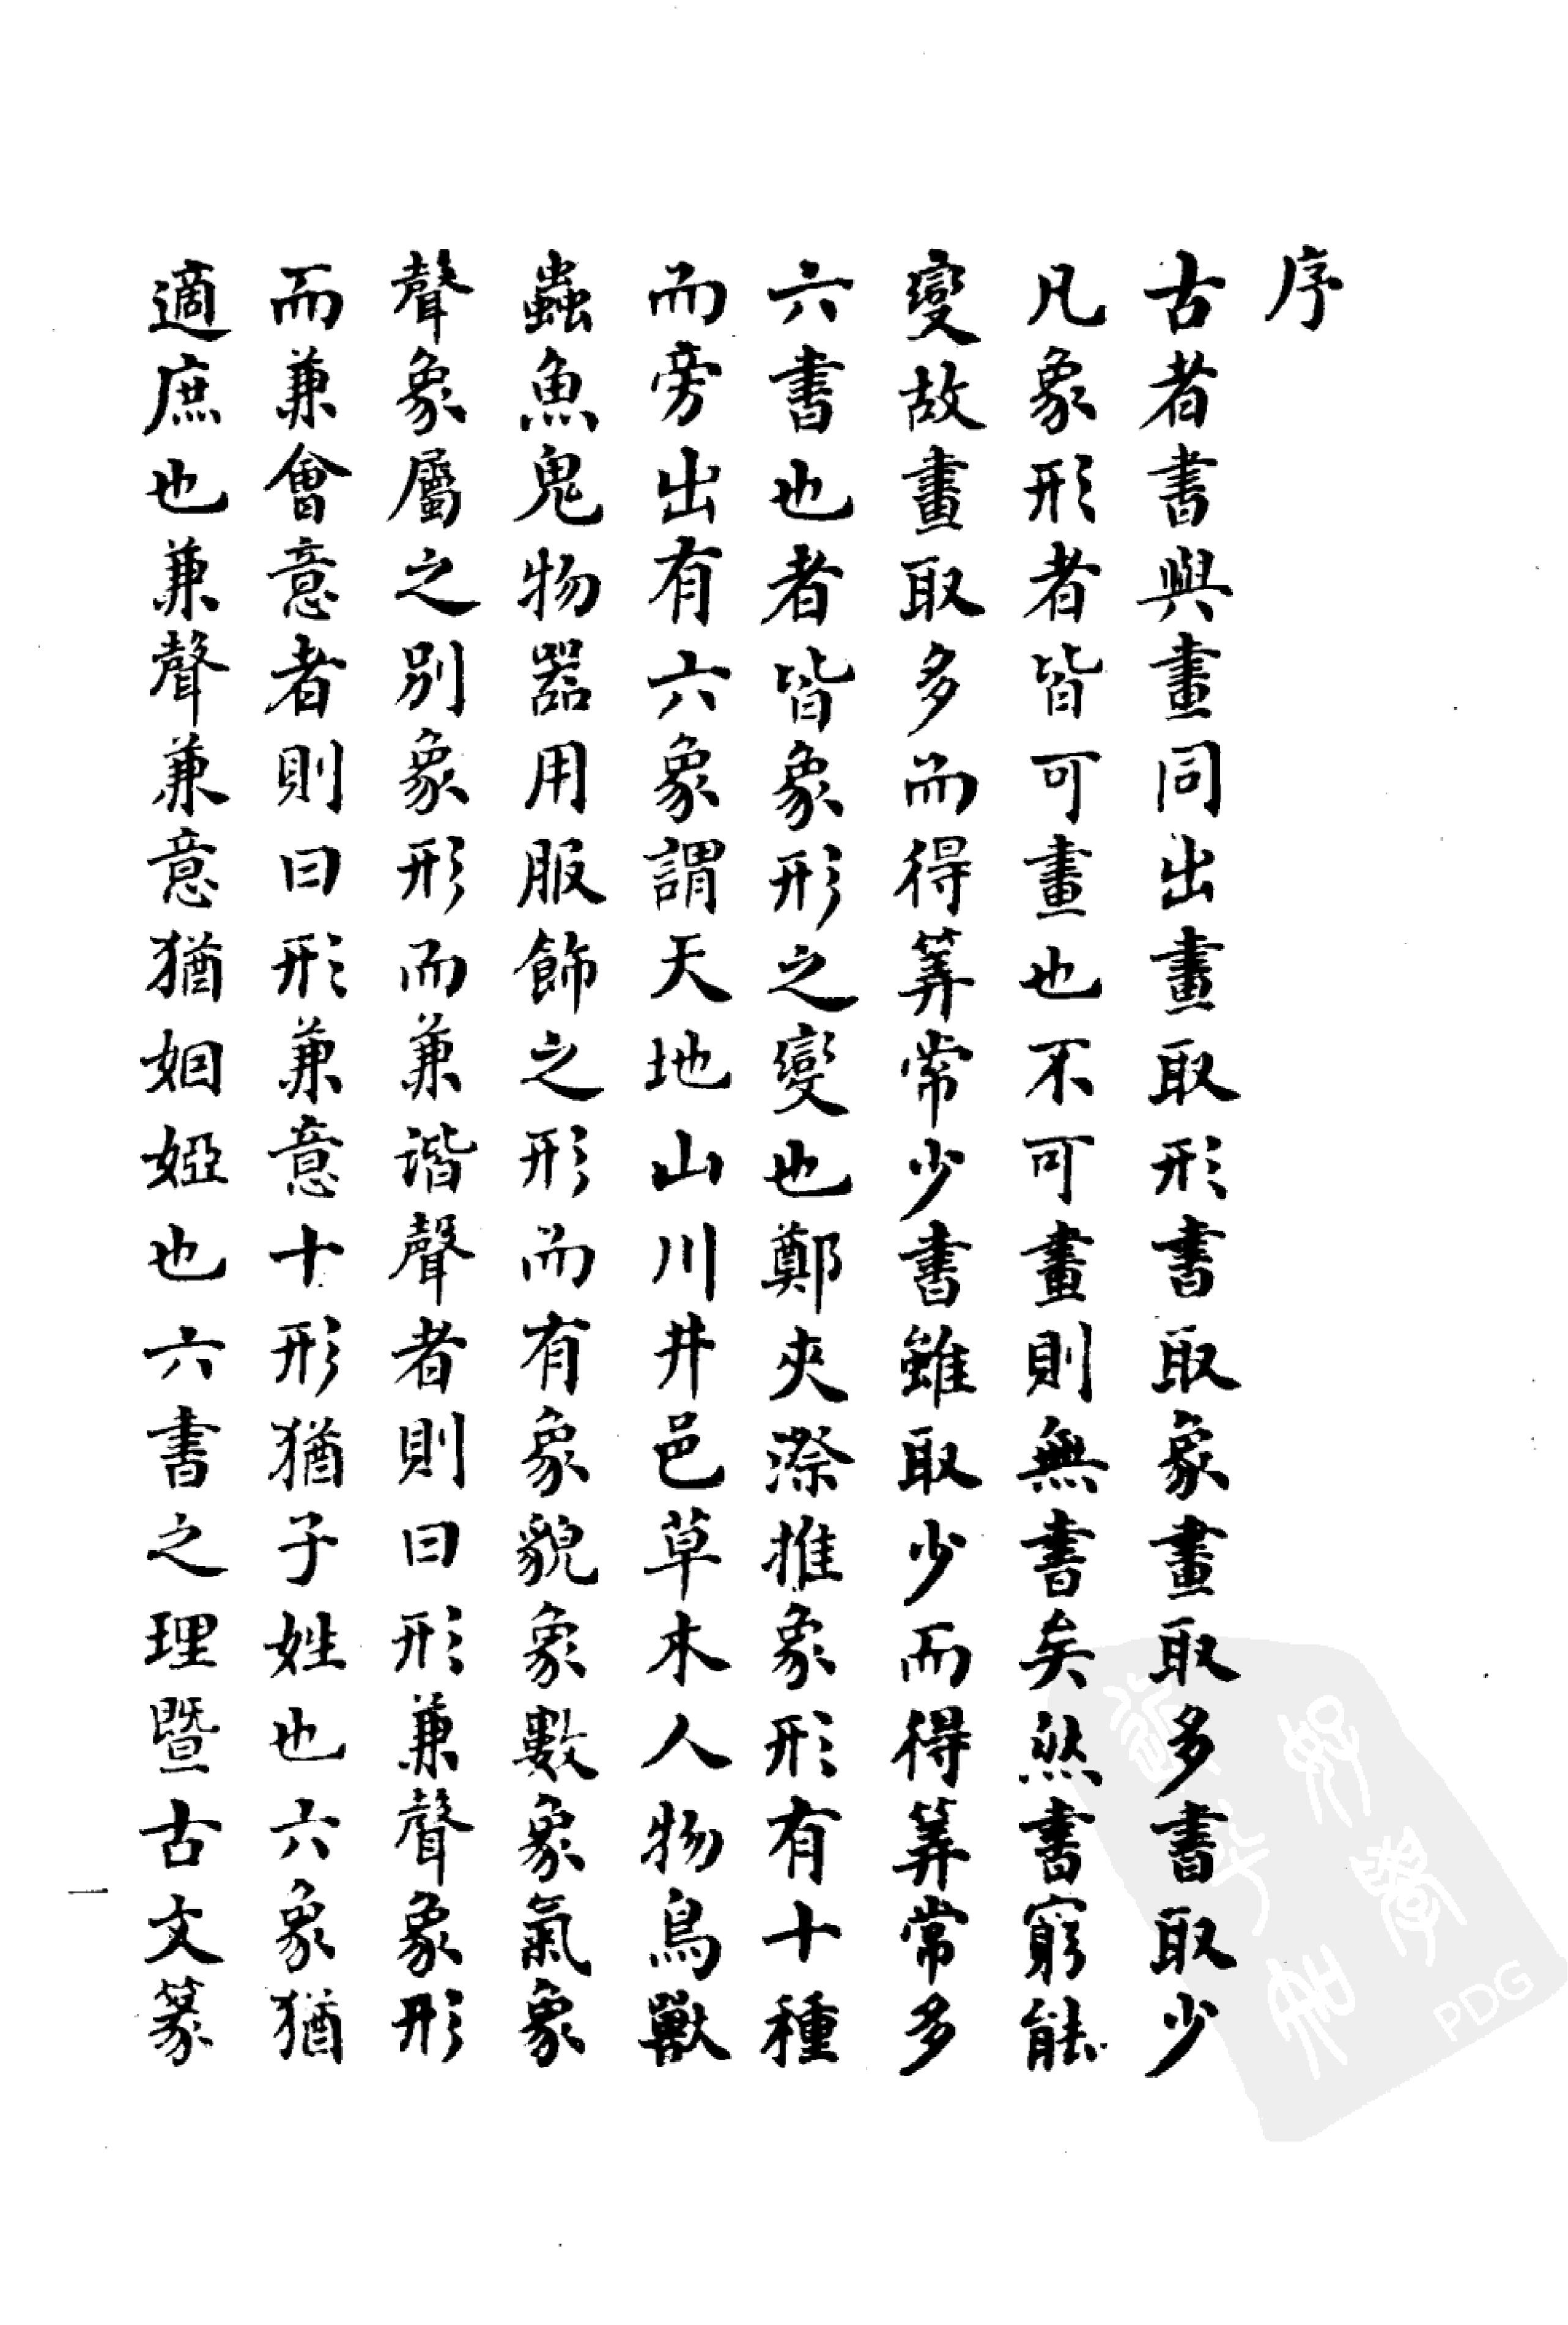 序
古者書與畫同出畫取形書取象畫取多書取少
凡象形者皆可畫也不可畫則無書矣然書窮能
變故畫取多而得筭常少書雖取少而得筭常多
六書也者皆象形之變也鄭夾漈推象形有十種
而旁出有六象謂天地山川井邑草木人物鳥獸
蟲魚鬼物器用服飾之形而有象貌象數象氣象
聲象屬之別象形而兼諧聲者則曰形兼聲象形
而兼會意者則曰形兼意十形猶子姓也六象猶
適庶也兼聲兼意猶姻婭也六書之理暨古文篆
一
PDG